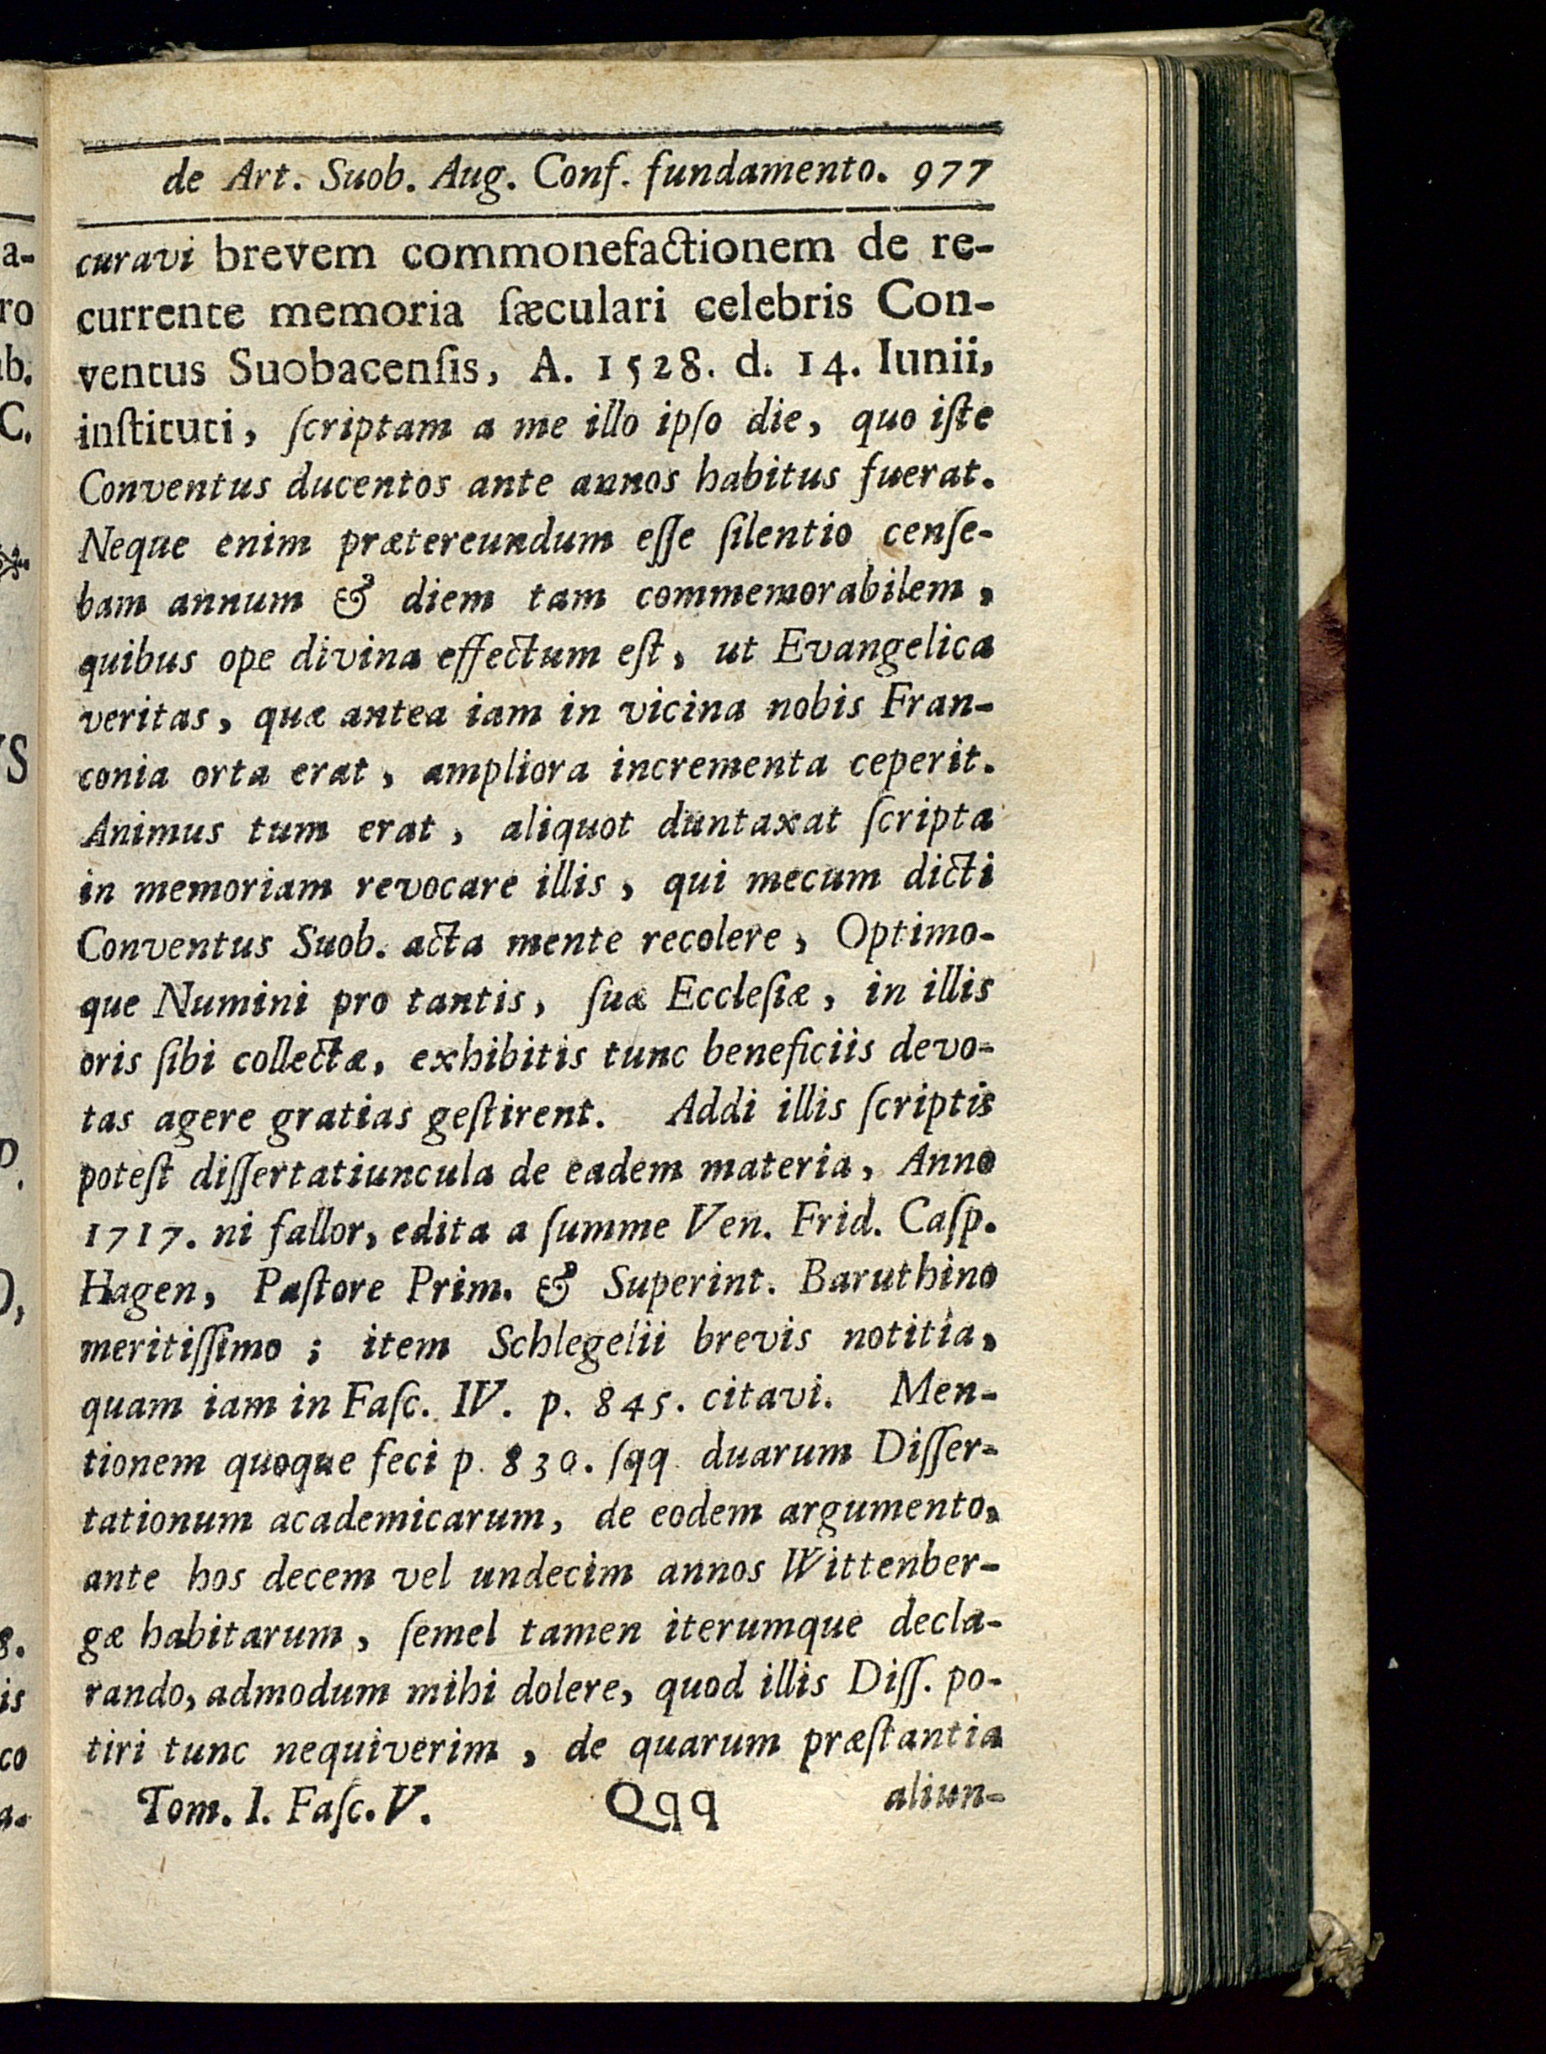 de Art. Suob. Aug. Conf. fundamento. 977
curavi brevem commonefactionem de re-
currente memoria ſæculari celebris Con-
ventus Suobacenſis, A. 1528. d. 14. Iunii,
inſtituti, ſcriptam a me illo ipſo die, quo iſte
Conventus ducentos ante annos habitus fuerat.
Neque enim prætereundum eſſe ſilentio cenſe-
bam annum & diem tam commemorabilem,
quibus ope divina effectum eſt, ut Evangelica
veritas, quæ antea iam in vicina nobis Fran-
conia orta erat, ampliora incrementa ceperit.
Animus tum erat, aliquot duntaxat ſcripta
in memoriam revocare illis, qui mecum dicti
Conventus Suob. acta mente recolere, Optimo-
que Numini pro tantis, ſuæ Eccleſiæ, in illis
oris ſibi collectæ, exhibitis tunc beneficiis devo-
tas agere gratias geſtirent. Addi illis ſcriptis
poteſt diſſertatiuncula de eadem materia, Anno
1717. ni fallor, edita a ſumme Ven. Frid. Caſp.
Hagen, Paſtore Prim. & Superint. Baruthino
meritiſſimo; item Schlegelii brevis notitia,
quam iam in Faſc. IV. p. 845. citavi. Men-
tionem quoque feci p. 830. ſqq. duarum Diſſer-
tationum academicarum, de eodem argumento,
ante hos decem vel undecim annos Wittenber-
gæ habitarum, ſemel tamen iterumque decla-
rando, admodum mihi dolere, quod illis Diſſ. po-
tiri tunc nequiverim, de quarum præſtantia
Tom. I. Faſc. V. Qqq aliun-